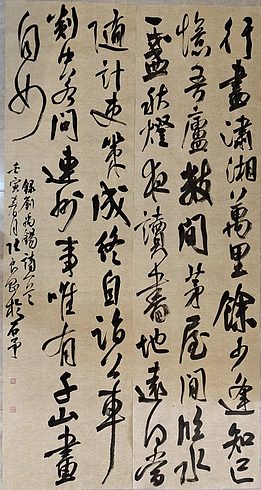 行盡瀟湘萬里餘少逢知己
憶吾廬數間茅屋閒臨水
一盞秋燈夜讀書地遠何當
隨計吏策成終自詣公車
剡中若問連州事唯有千山畫
不如
錄劉禹錫詩
壬寅 月